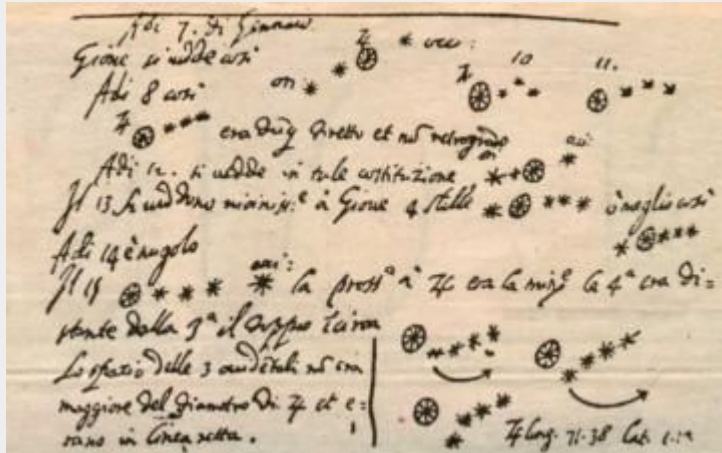 Adi 7. di Gennaio
Gione si vedde così ori: occ:
Adi 8 così 10 11.
era dũq diretto et nõ retrogrado
Adi 12. si vedde in tale costituzione ori occi:
Il 13 si veddono à Gione 4 stelle ò meglio così
Adi 14 è nugolo
Il 15 occi: la prossª à ♃ era la minª la 4ª era di=
stante dalla 3ª il doppio
Lo spazio delle 3 nõ era
maggiore del diametro di ♃ et e=
rano in linea retta.
♃ long. 71.38 lat. 1.13